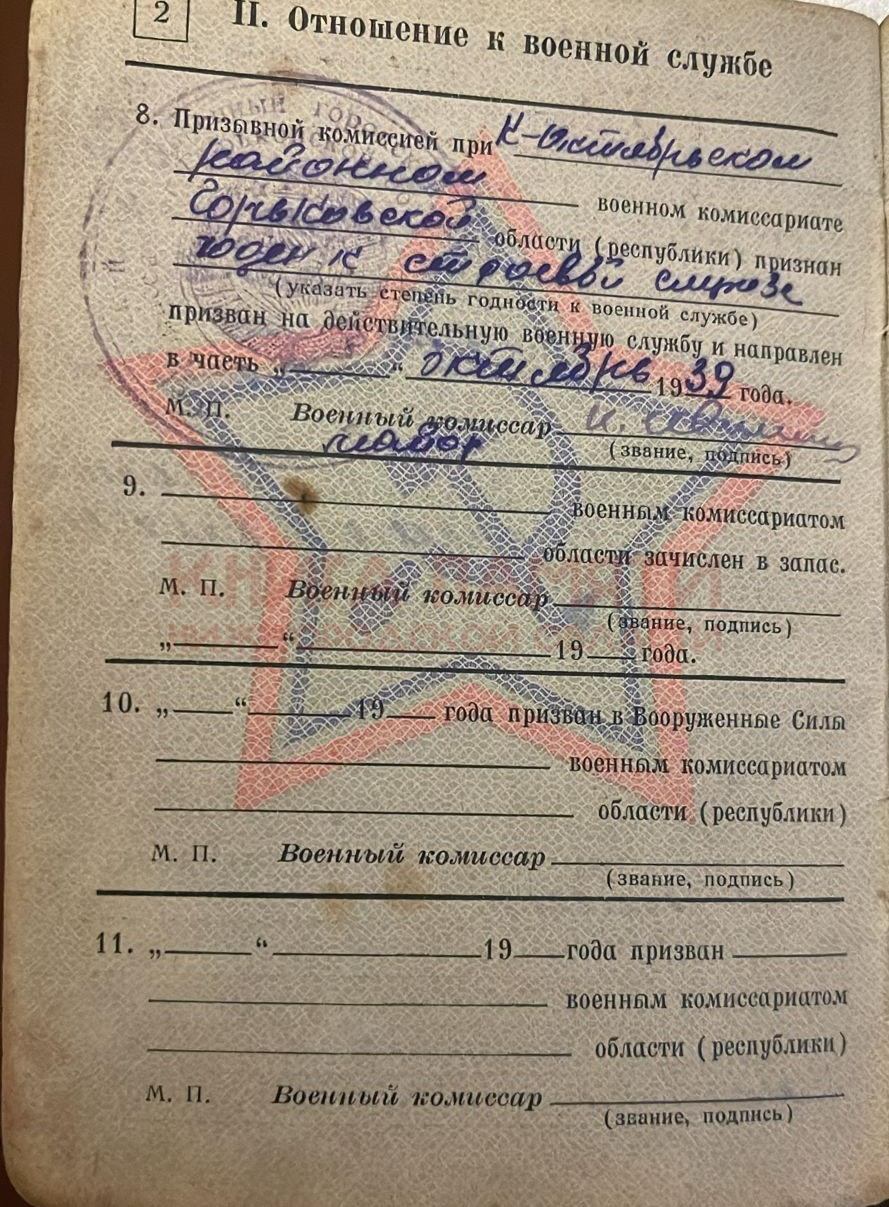 2
II. Отношение к военной службе
8. Призывной комиссией при К-Октябрьском
районном военном комиссариате
Горьковской области (республики) признан
годен к строевой службе
(указать степень годности к военной службе)
призван на действительную военную службу и направлен
в часть „ “ октябрь 1939 года.
М. П. Военный комиссар
майор (звание, подпись)
9. военным комиссариатом
области зачислен в запас.
КНИГА ПАМЯТИ
М. П. Военный комиссар
(звание, подпись)
„ “ 19 года.
10. „ “ 19 года призван в Вооруженные Силы
военным комиссариатом
области (республики)
М. П. Военный комиссар
(звание, подпись)
11. „ “ 19 года призван
военным комиссариатом
области (республики)
М. П. Военный комиссар
(звание, подпись)